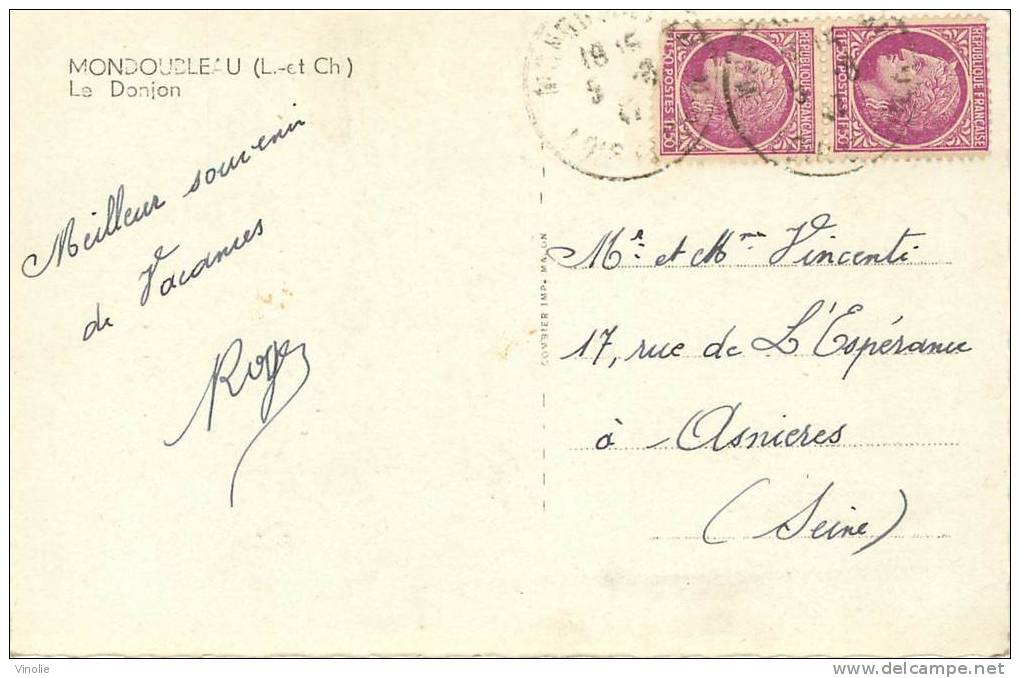 MONDOUBLEAU (L.-et Ch)
Le Donjon
Meilleur souvenir
de Vacances
Roger
COMBIER IMP. MACON
18 15
RÉPUBLIQUE FRANÇAISE
1F.50 POSTES 1F.50
RÉPUBLIQUE FRANÇAISE
1F.50 POSTES 1F.50
Mr. et Mme Vincenti
17, rue de L'Espérance
à Asnieres
(Seine)
Vinolie
www.delcampe.net